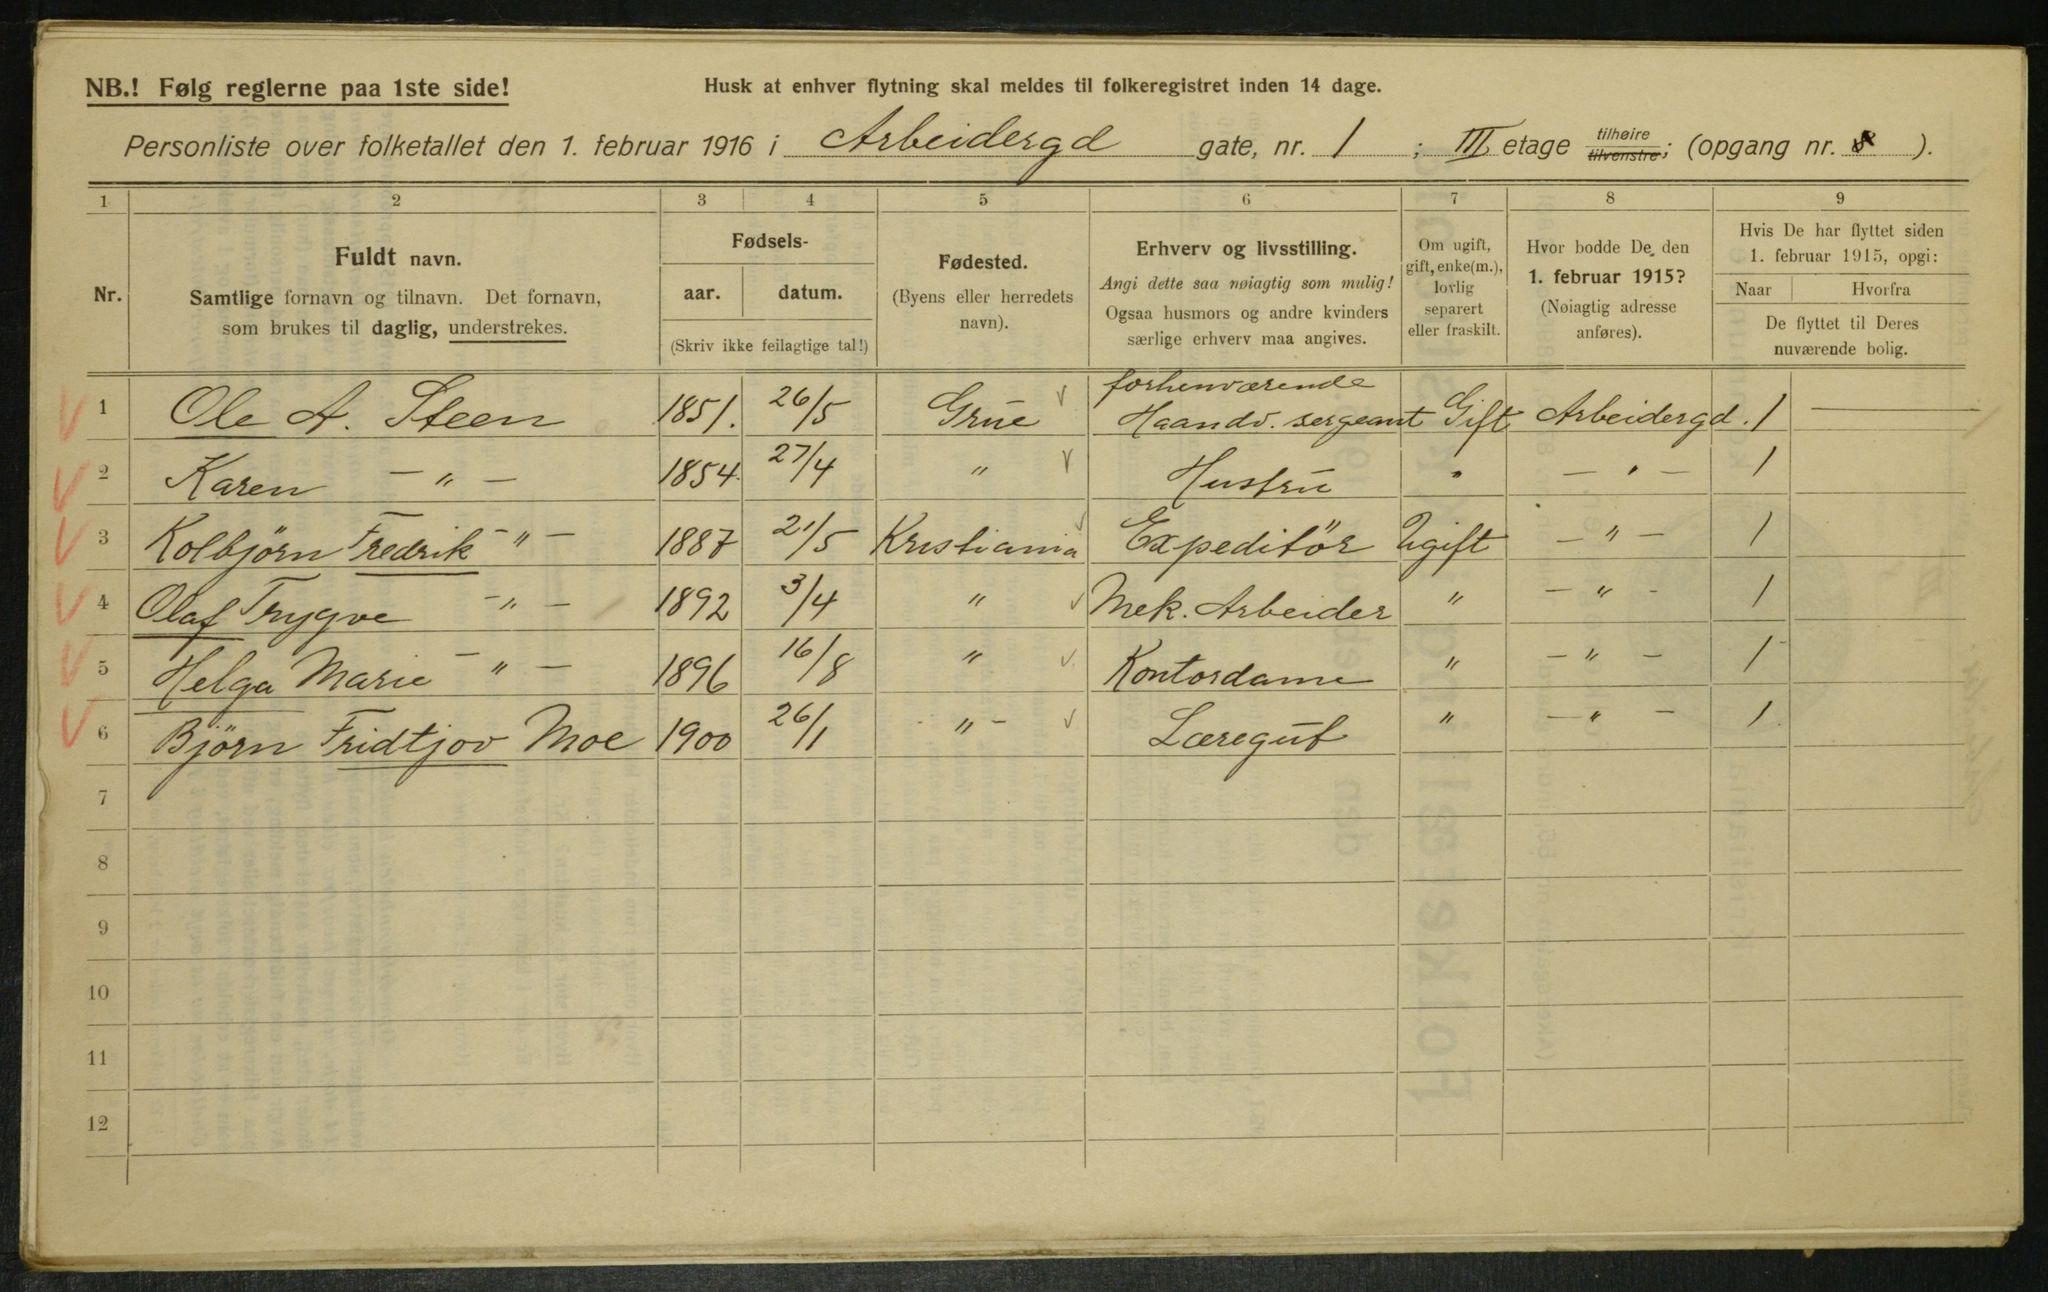 NB.! Følg reglerne paa 1ste side!
Husk at enhver flytning skal meldes til folkeregistret inden 14 dage.
Personliste over folketallet den 1. februar 1916 i Arbeidergd gate, nr. 1 ; III etage tilhøire tilvenstre; (opgang nr. ).
1 2 3 4 5 6 7 8 9
Nr.
Fuldt navn.
Samtlige fornavn og tilnavn. Det fornavn,
som brukes til daglig, understrekes.
Fødsels-
aar. datum.
(Skriv ikke feilagtige tal!)
Fødested.
(Byens eller herredets
navn).
Erhverv og livsstilling.
Angi dette saa nøiagtig som mulig!
Ogsaa husmors og andre kvinders
særlige erhverv maa angives.
Om ugift,
gift, enke(m.),
lovlig
separert
eller fraskilt.
Hvor bodde De den
1. februar 1915?
(Nøiagtig adresse
anføres).
Hvis De har flyttet siden
1. februar 1915, opgi:
Naar Hvorfra
De flyttet til Deres
nuværende bolig.
forhenværende
1 Ole A. Steen 1851. 26/5 Grue Haandv. sergeant Gift Arbeidergd. 1 —
2 Karen — " — 1854 27/4 " Hustru " — " — 1
3 Kolbjörn Fredrik — " — 1887 21/5 Kristiania Expeditör Ugift — " — 1
4 Olaf Trygve — " — 1892 3/4 " Mek. Arbeider " — " — 1
5 Helga Marie — " — 1896 16/8 " Kontordame " — " — 1
6 Björn Fridtjov Moe 1900 26/1 " — Læregut " — " — 1
7
8
9
10
11
12